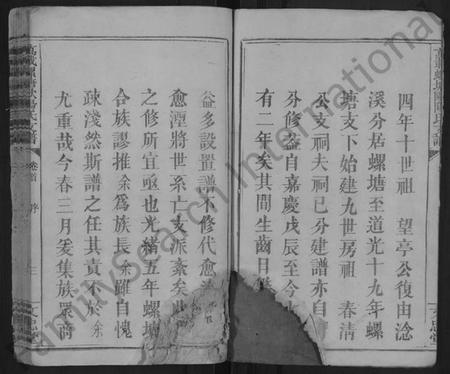 四年十世祖　望亭公復由淰
溪分居螺塘至道光十九年螺
塘支下始建九世房祖　春清
公支祠夫祠已分建譜亦自
分修盖自嘉慶戊辰至今
有二年矣其間生齒日
益多設置譜不修代愈
愈湮將世系亡支派紊矣
之修所宜亟也光緒五年螺塘
合族謬推余爲族長余雖自愧
疎淺然斯譜之任其責不於余
尤重哉今春三月爰集族衆商
卷首　序
FamilySearch International